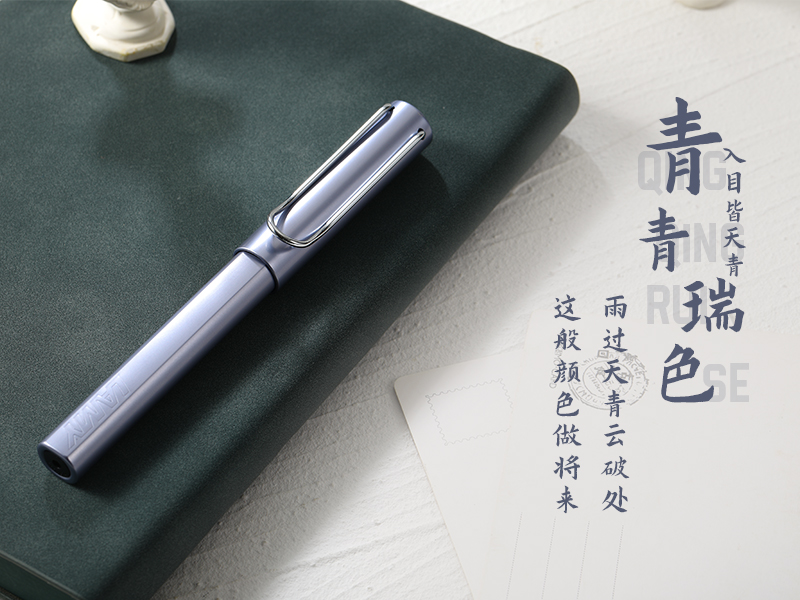 青青瑞色
入目皆天青
QING
QING
RUI
SE
雨过天青云破处
这般颜色做将来
LAMY